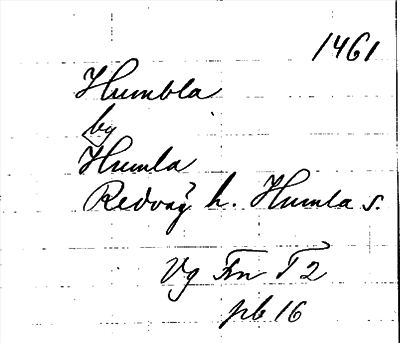 1461
Humbla
by
Humla
Redväg h. Humla s.
Vg Fn T 2
pb 16